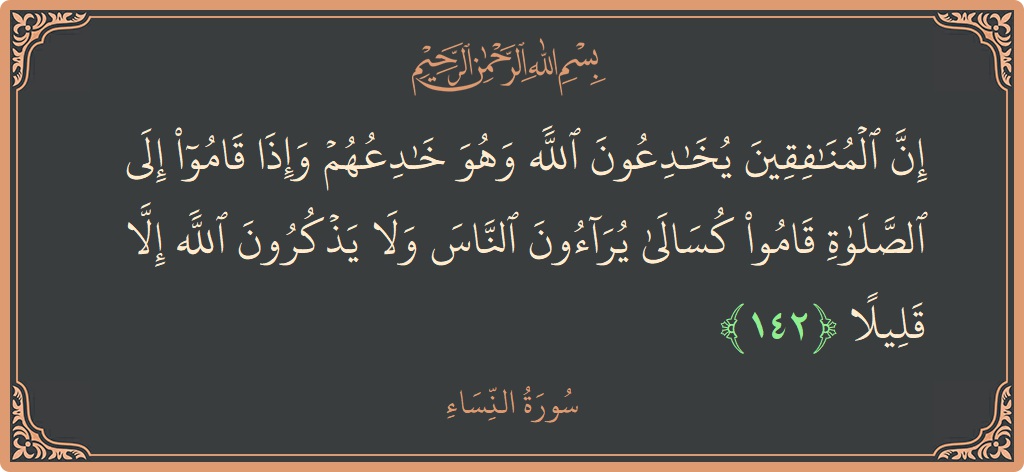 بِسْمِ اللهِ الرَّحْمٰنِ الرَّحِيْمِ
إِنَّ ٱلۡمُنَـٰفِقِينَ يُخَـٰدِعُونَ ٱللَّهَ وَهُوَ خَـٰدِعُهُمۡ وَإِذَا قَامُوٓاْ إِلَى
ٱلصَّلَوٰةِ قَامُواْ كُسَالَىٰ يُرَآءُونَ ٱلنَّاسَ وَلَا يَذۡكُرُونَ ٱللَّهَ إِلَّا
قَلِيلًا ﴿١٤٢﴾
سُورَةُ النِّسَاءِ